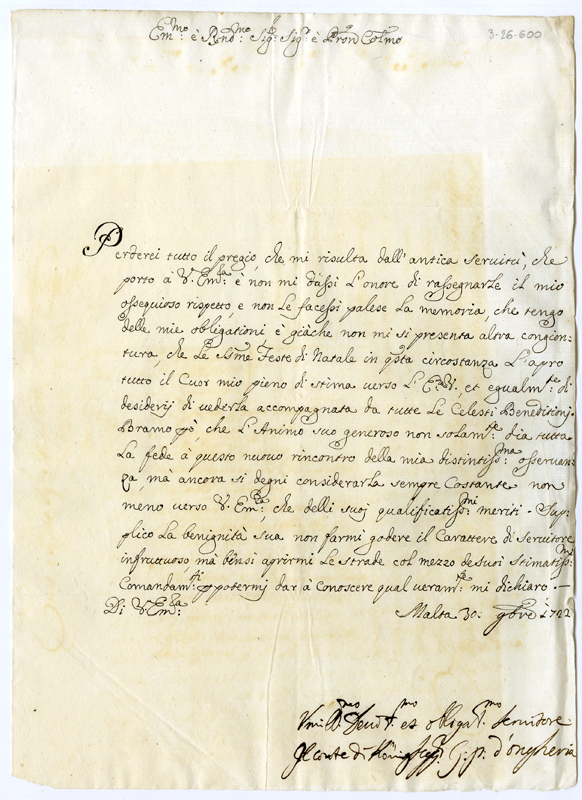 Em.mo è R.nd.mo Sig.r Sig.r è P.ron Col.mo
3-26-600
Perderei tutto il pregio, che mi risulta dall'antica servitù, che
porto à V. Em.za è non mi dassi L'onore di rassegnarLe il mio
ossequioso rispetto, e non Le facessi palese La memoria, che tengo
delle mie obligationi è giàche non mi si presenta altra congion-
tura, che Le S.me Feste di Natale in q.sta circostanza L'apro
tutto il Cuor mio pieno di stima verso L'E.V., et egualm.te di
desiderij di vederLa accompagnata da tutte Le Celesti Beneditionj.
Bramo p.ò, che L'Animo suo generoso non solam.te dia tutta
La fede à questo nuovo rincontro della mia distintiss.ma osservan-
za mà ancora si degni considerarLa sempre Costante non
meno verso V. Em.za, che delli suoj qualificatiss.mi meriti. Sup-
plico La benignità sua non farmi godere il Carattere di Servitore
infruttuoso mà bensì aprirmi Le strade col mezzo de suoi Stimatiss.mi
Comandam.ti p potermj dar à Conoscere qual veram.te mi dichiaro —
Di V. Em.za
Malta 30. 9bre 1722
Vmil.mo Deuot.mo et obligat.mo seruitore
Il conte di Königsegg G. p. d'ongheria